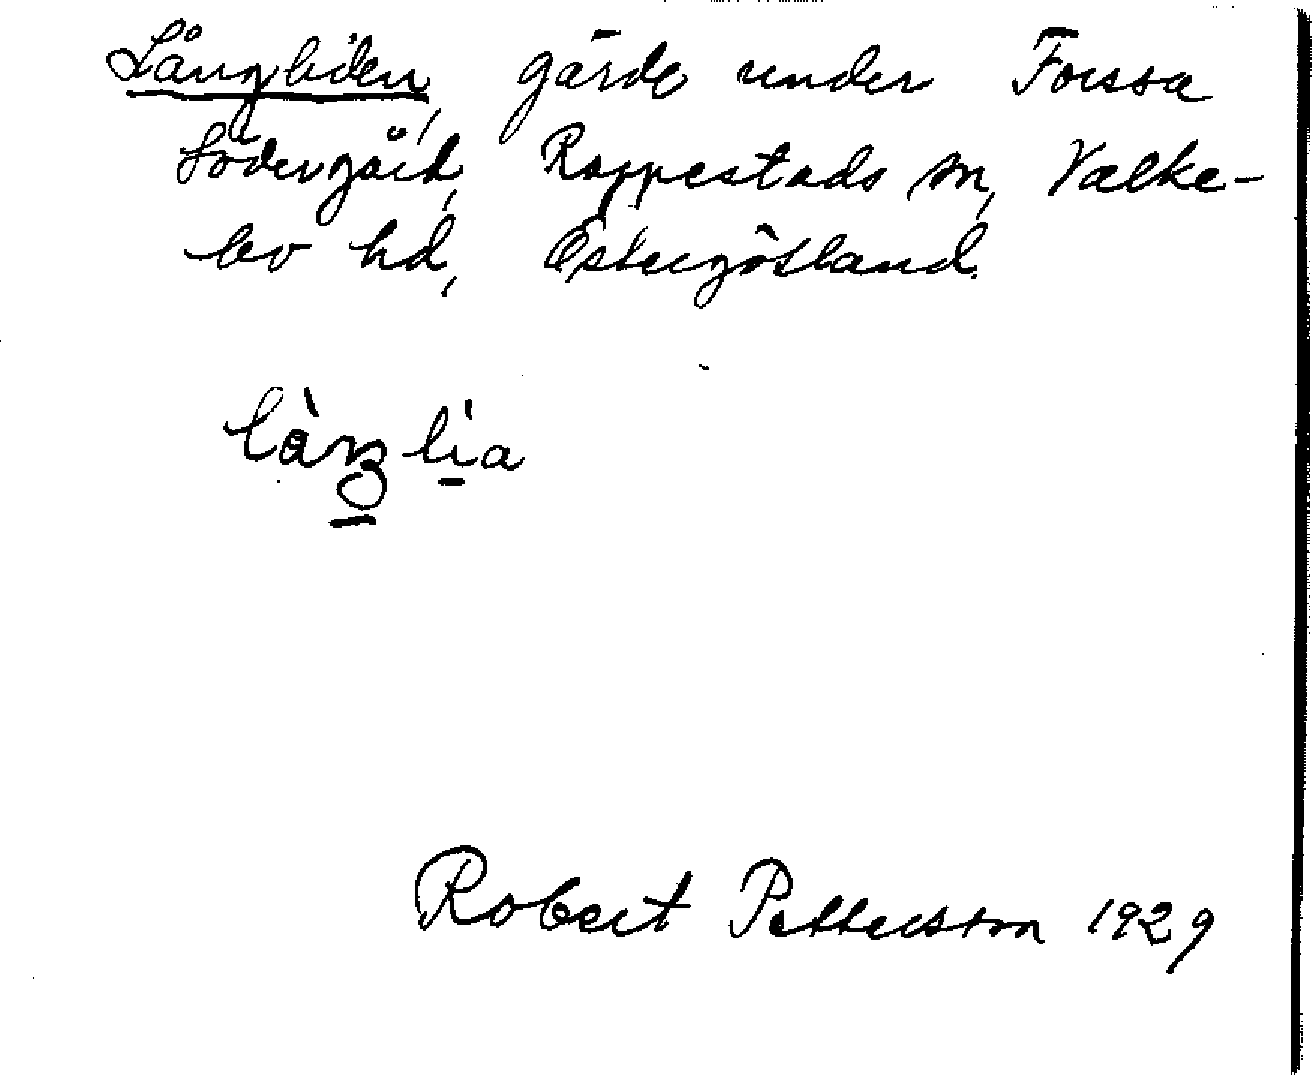 Långliden, gärde under Fossa
Södergård, Rappestads sn, Valke-
bo hd, Östergötland.
làŋlìa
Robert Pettersson 1929